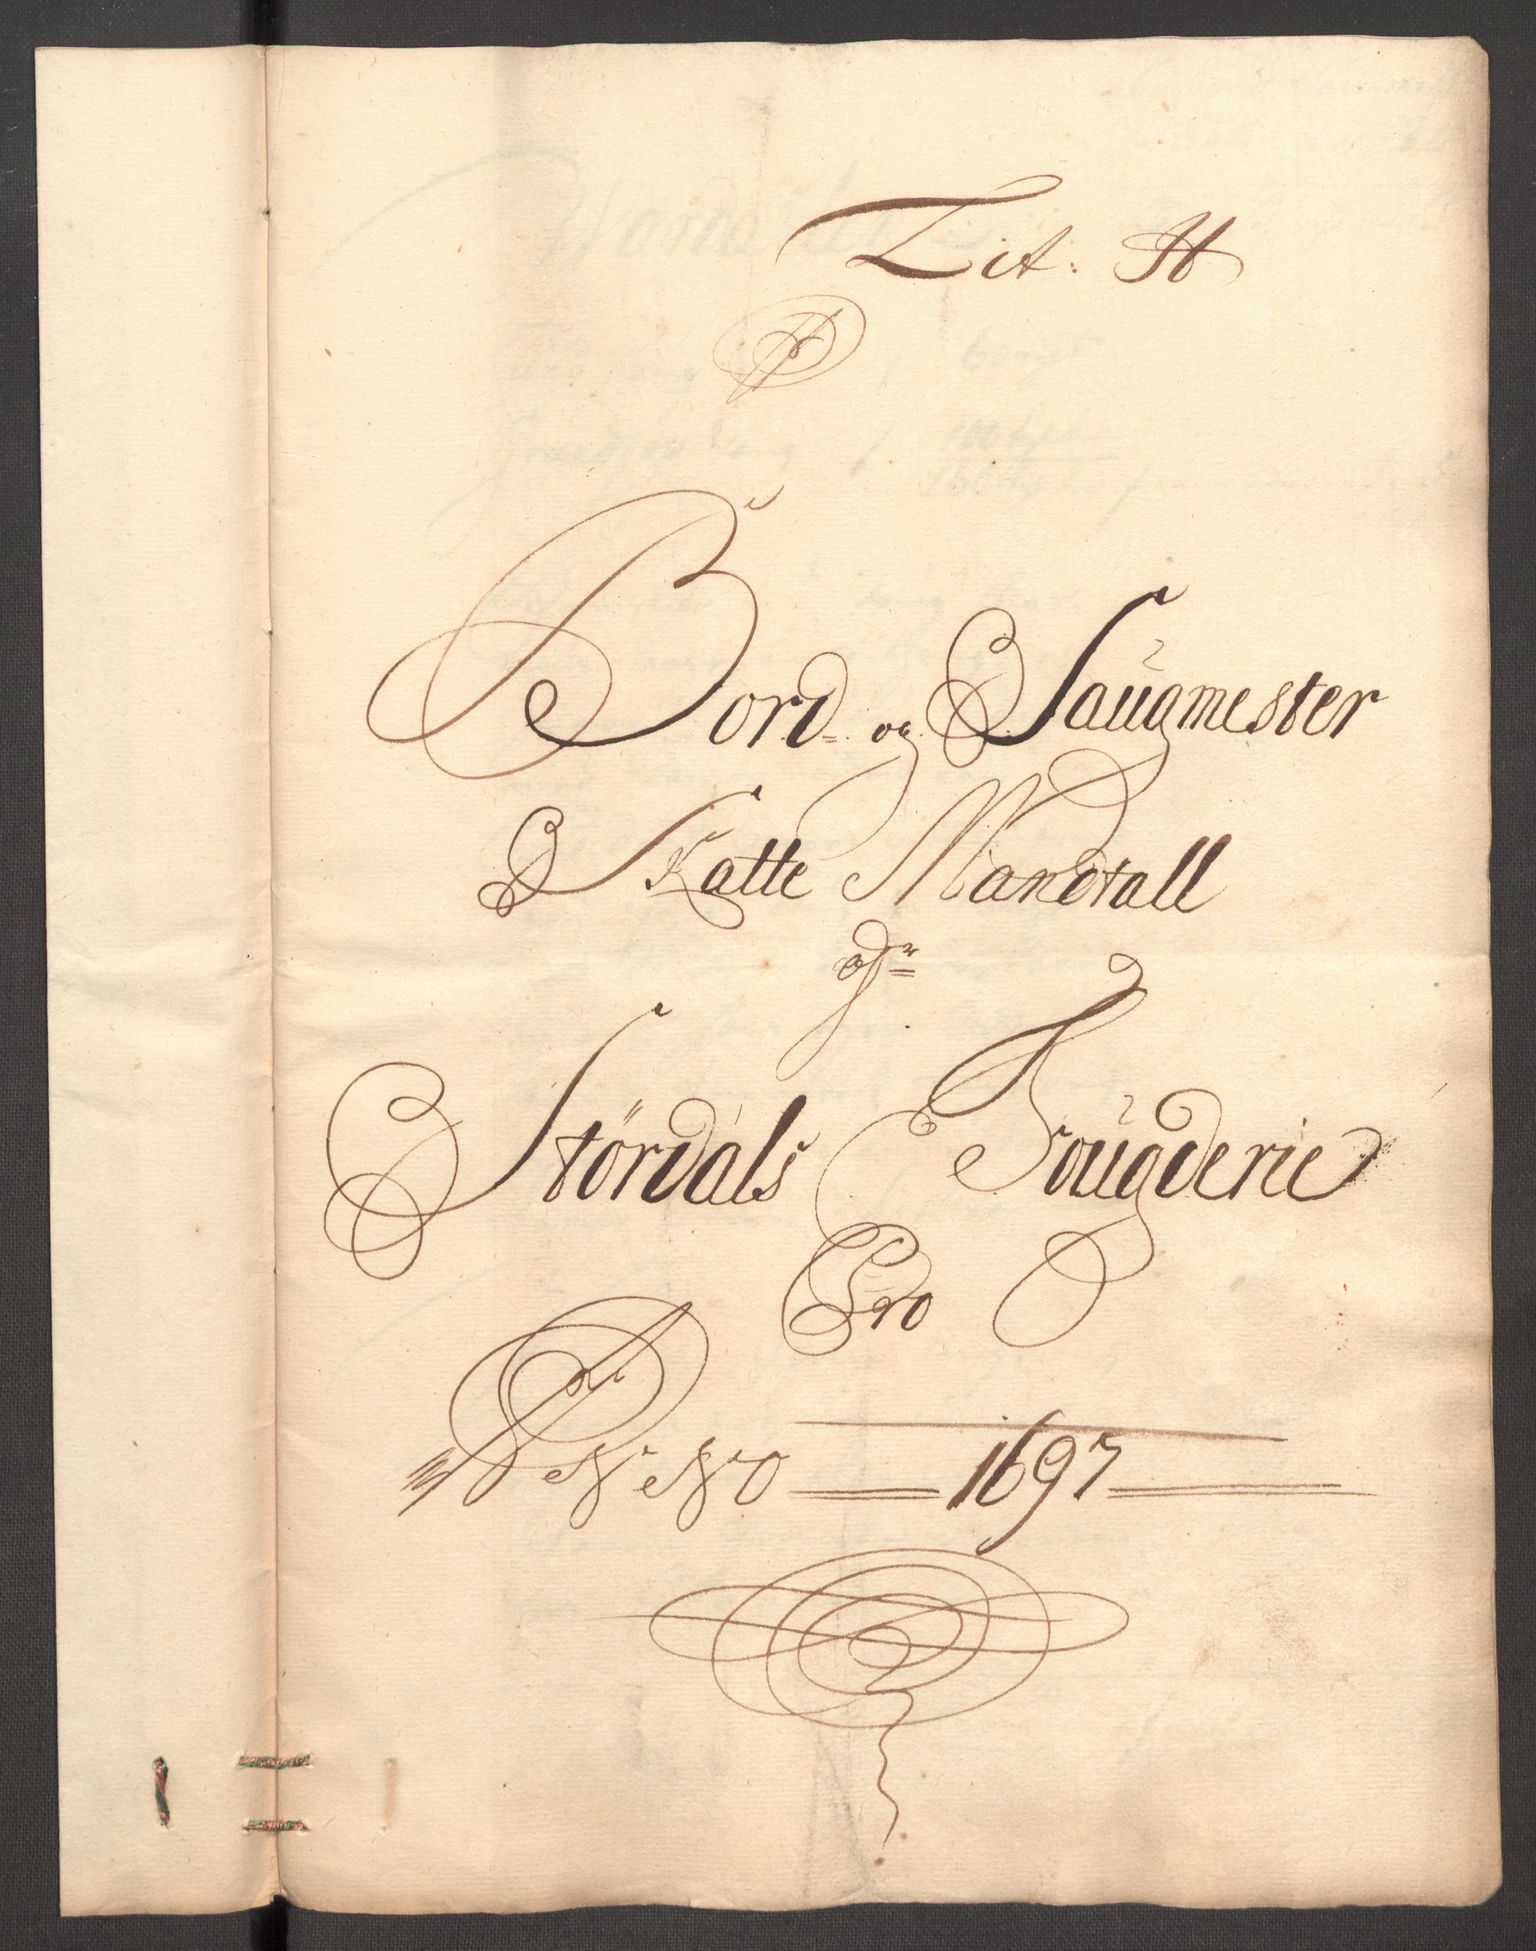 Lit. H
Bord- og Saugmester
Skatte Mandtall
ofr
Stördals Fougderie
Pro
ANNO 1697